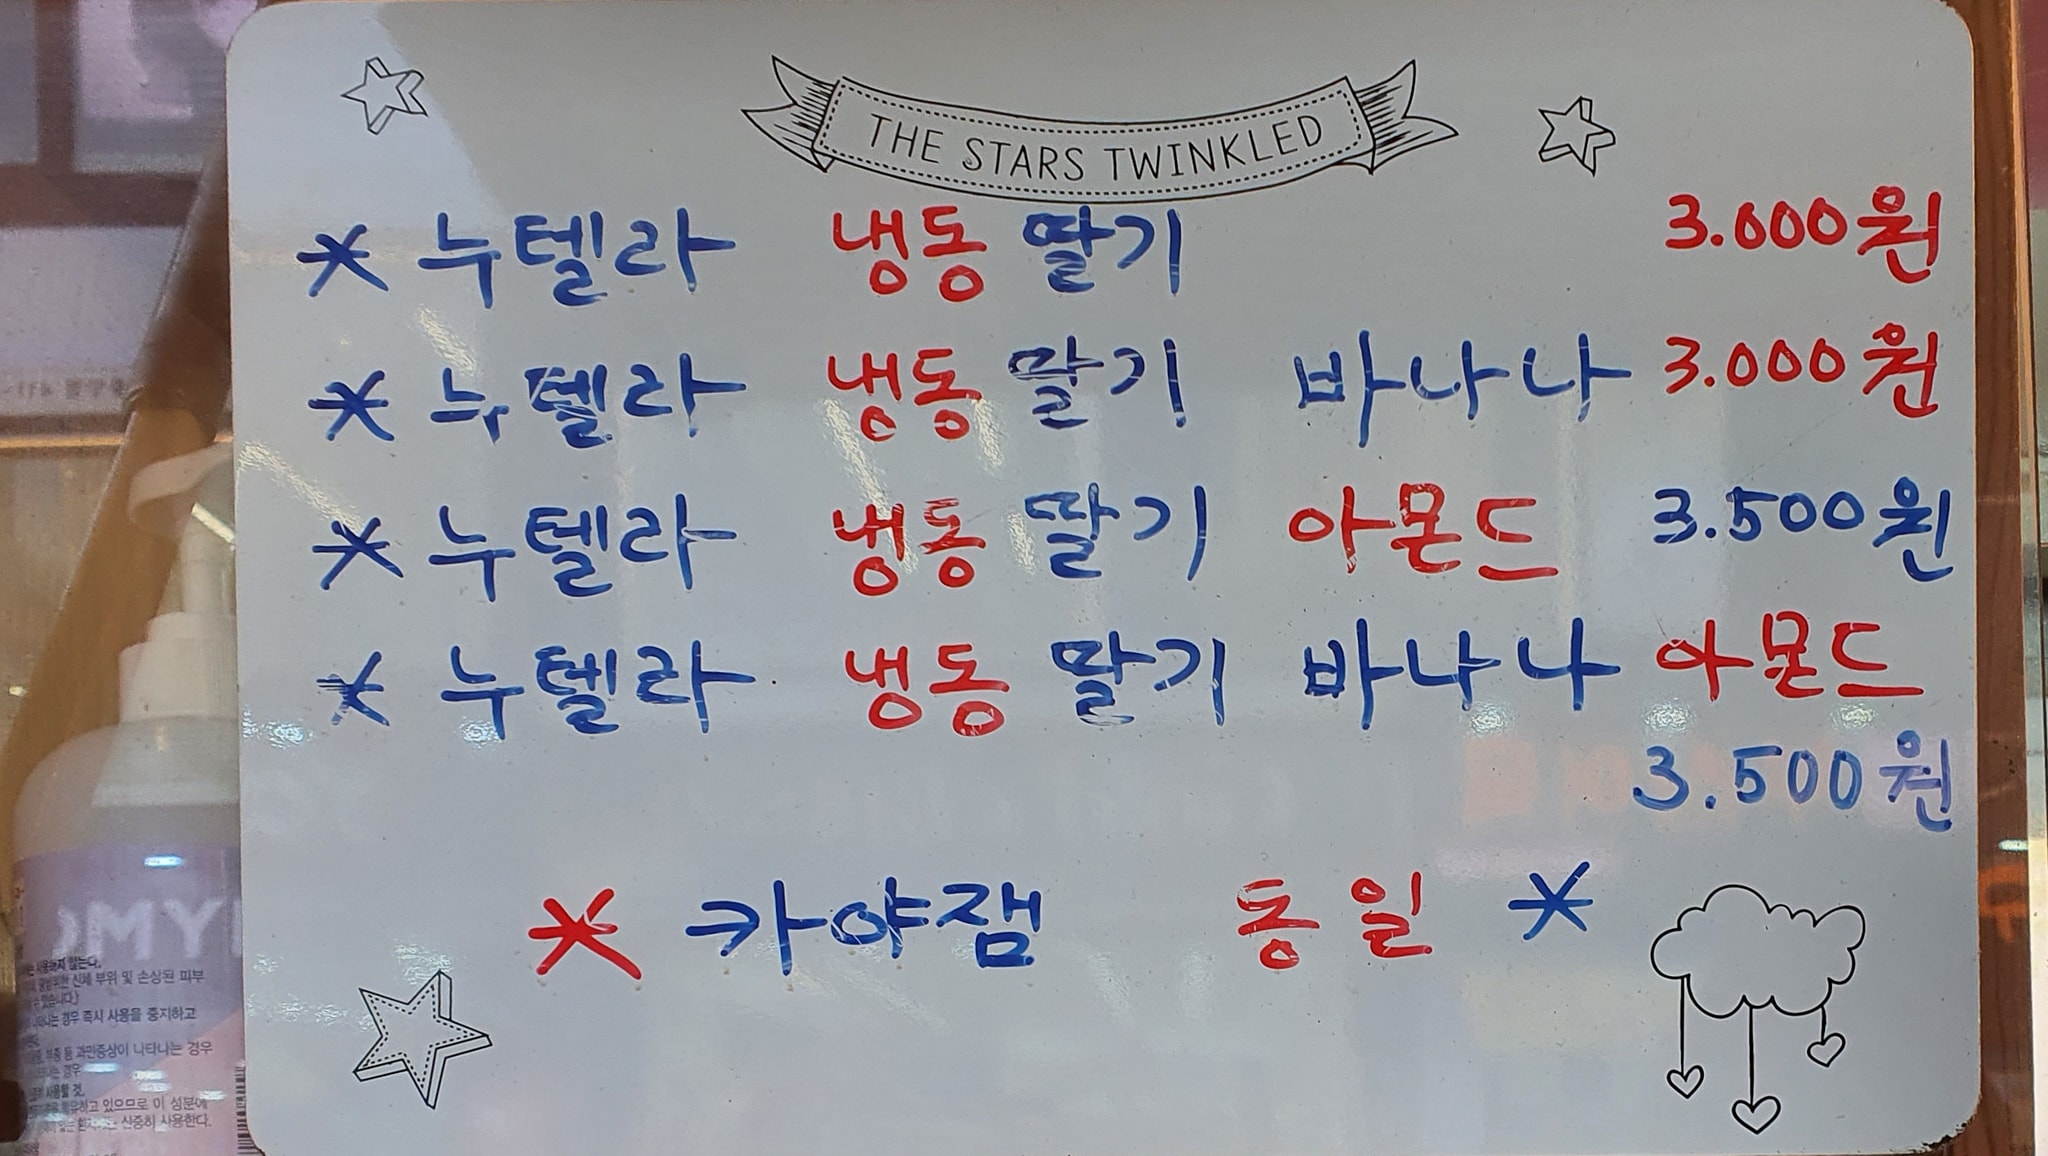 THE STARS TWINKLED
* 누텔라 냉동 딸기 3.000원
* 누텔라 냉동 딸기 바나나 3.000원
* 누텔라 냉동 딸기 아몬드 3.500원
* 누텔라 냉동 딸기 바나나 아몬드
3.500원
* 카야잼 동일 *
사용하지 않는다.
신체 부위 및 손상된 피부
경우 즉시 사용을 중지하고
부종 등 과민증상이 나타나는 경우
있으므로 이 성분에
신중히 사용한다.